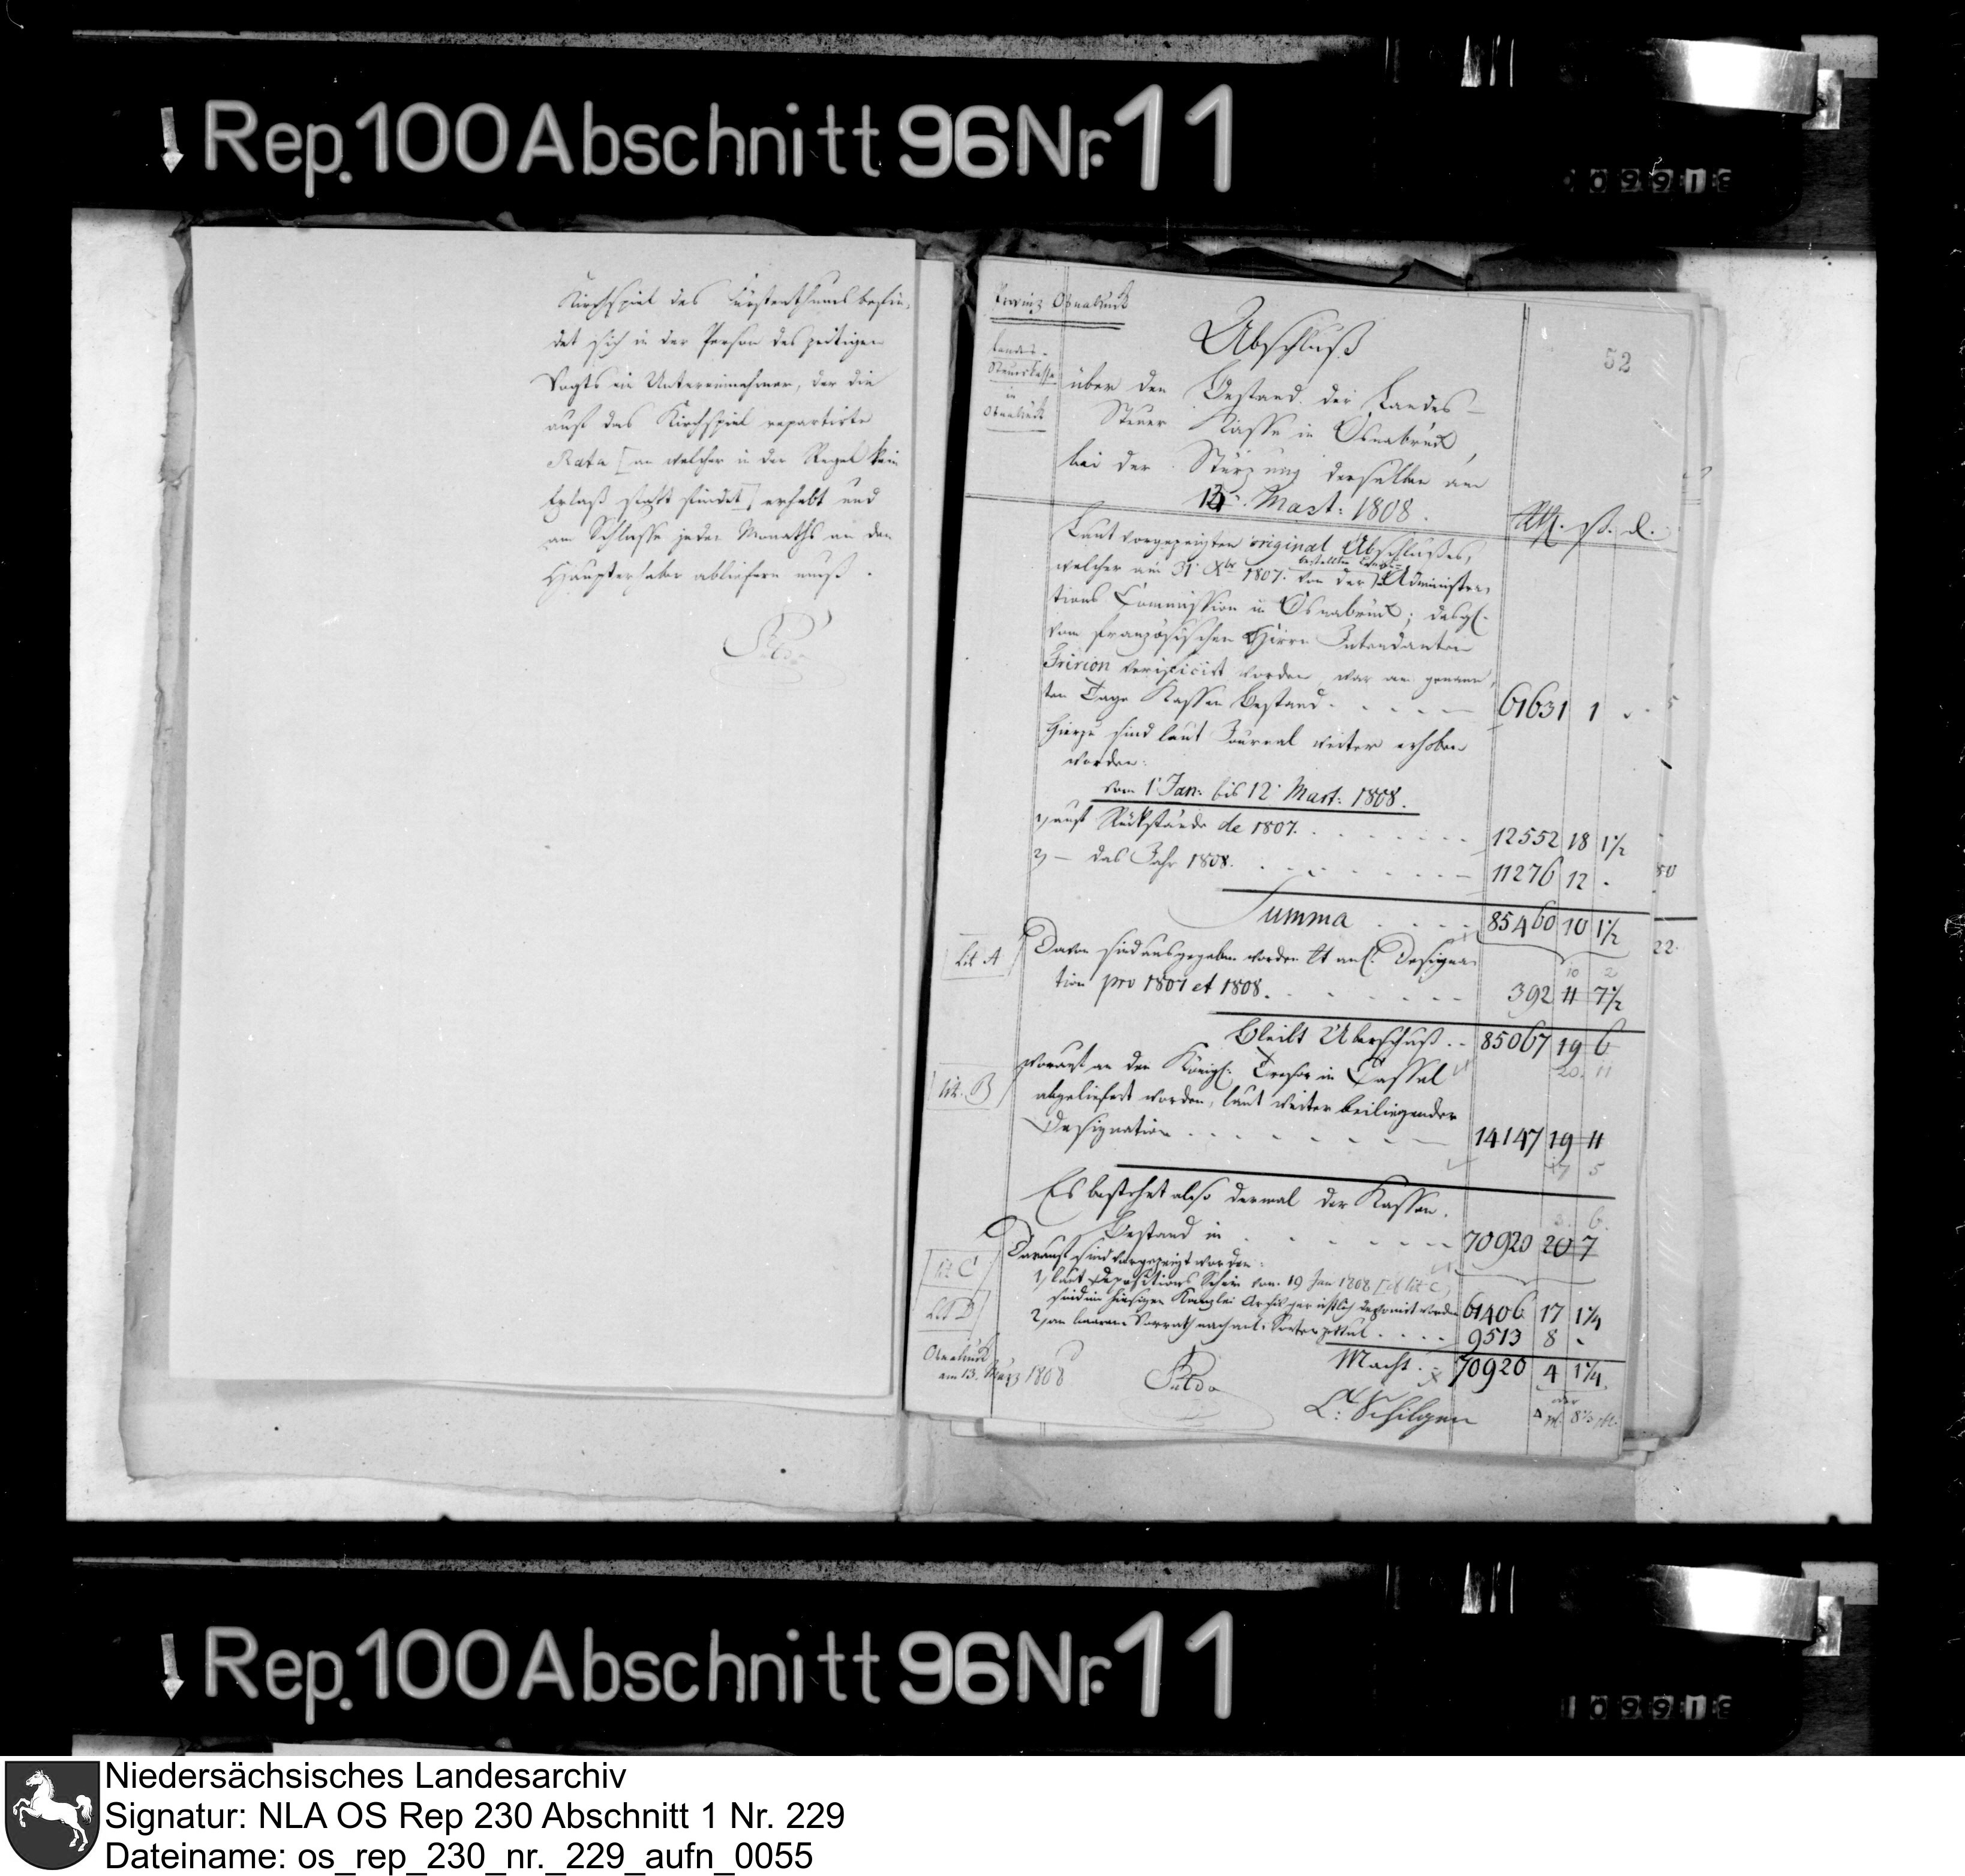 Rep. 100 Abschnitt 96 Nr. 11
Kirchspiel des Fürstenthums befin-
det sich in der Person des zeitigen
Vogts ein Untereinnehmer, der die
auf das Kirchspiel repartirte
Rata [an welcher in der Regel kein
Erlaß statt findet] erhebt und
am Schlusse jeden Monaths an den
Haupterheber abliefern muß.
Provinz Osnabrück
Landes-
Steuerkasse
in
Osnabrück
52
Abschluß
über den Bestand der Landes-
Steuer Kasse in Osnabrück,
bei der Stürzung derselben am
13t. Mart: 1808.
Rthl. ß. d.
Laut vorgezeigten original Abschlußes,
welcher am 31t Xbr 1807. von der bestellten Administra-
tions Commission in Osnabrück; desgl.
vom französischen Herrn Intendanten
Fririon verificirt worden, war am genann-
ten Tage Kassen Bestand. 61631 1
Hierzu sind laut Journal weiter erhoben
worden:
vom 1t Jan: bis 12t Mart: 1808.
1) auf Rückstände de 1807. 12552 18 1 1/2
2) — das Jahr 1808. 11276 12 .
Summa 85460 10 1 1/2
Lit A
Davon sind ausgegeben worden lt anl. Designa-
10 2
tion pro 1807 et 1808. 392 11 7 1/2
bleibt Überschuß. 85067 19 6
20. 11
Lit. B
worauf an den Königl. Tresor in Cassel
abgeliefert worden, laut weiter beiliegender
Designation 14147 19 11
17 5
Es bestehet also dermal der Kassen-
3. 6.
Bestand in 70920 20 7
Darauf sind vorgezeigt worden:
Lit C
1) laut Depositions Schein vom 19 Jan 1808 [cf lit C]
sind im hiesigen Kanzlei Archiv gerichtlich deponirt worden 61406 17 1 1/4
Lit D
2) an baarem Vorrath nach anl. Sortenzettul 9513 8 -
Macht. 70920 4 1 1/4
Osnabrück
am 13. März 1808
L. Schilgen
Rep. 100 Abschnitt 96 Nr. 11
Niedersächsisches Landesarchiv
Signatur: NLA OS Rep 230 Abschnitt 1 Nr. 229
Dateiname: os_rep_230_nr._229_aufn_0055